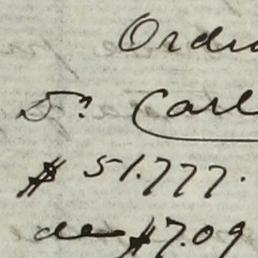 Ordi
Sr. Carl
$ 51.777.
de $7.09